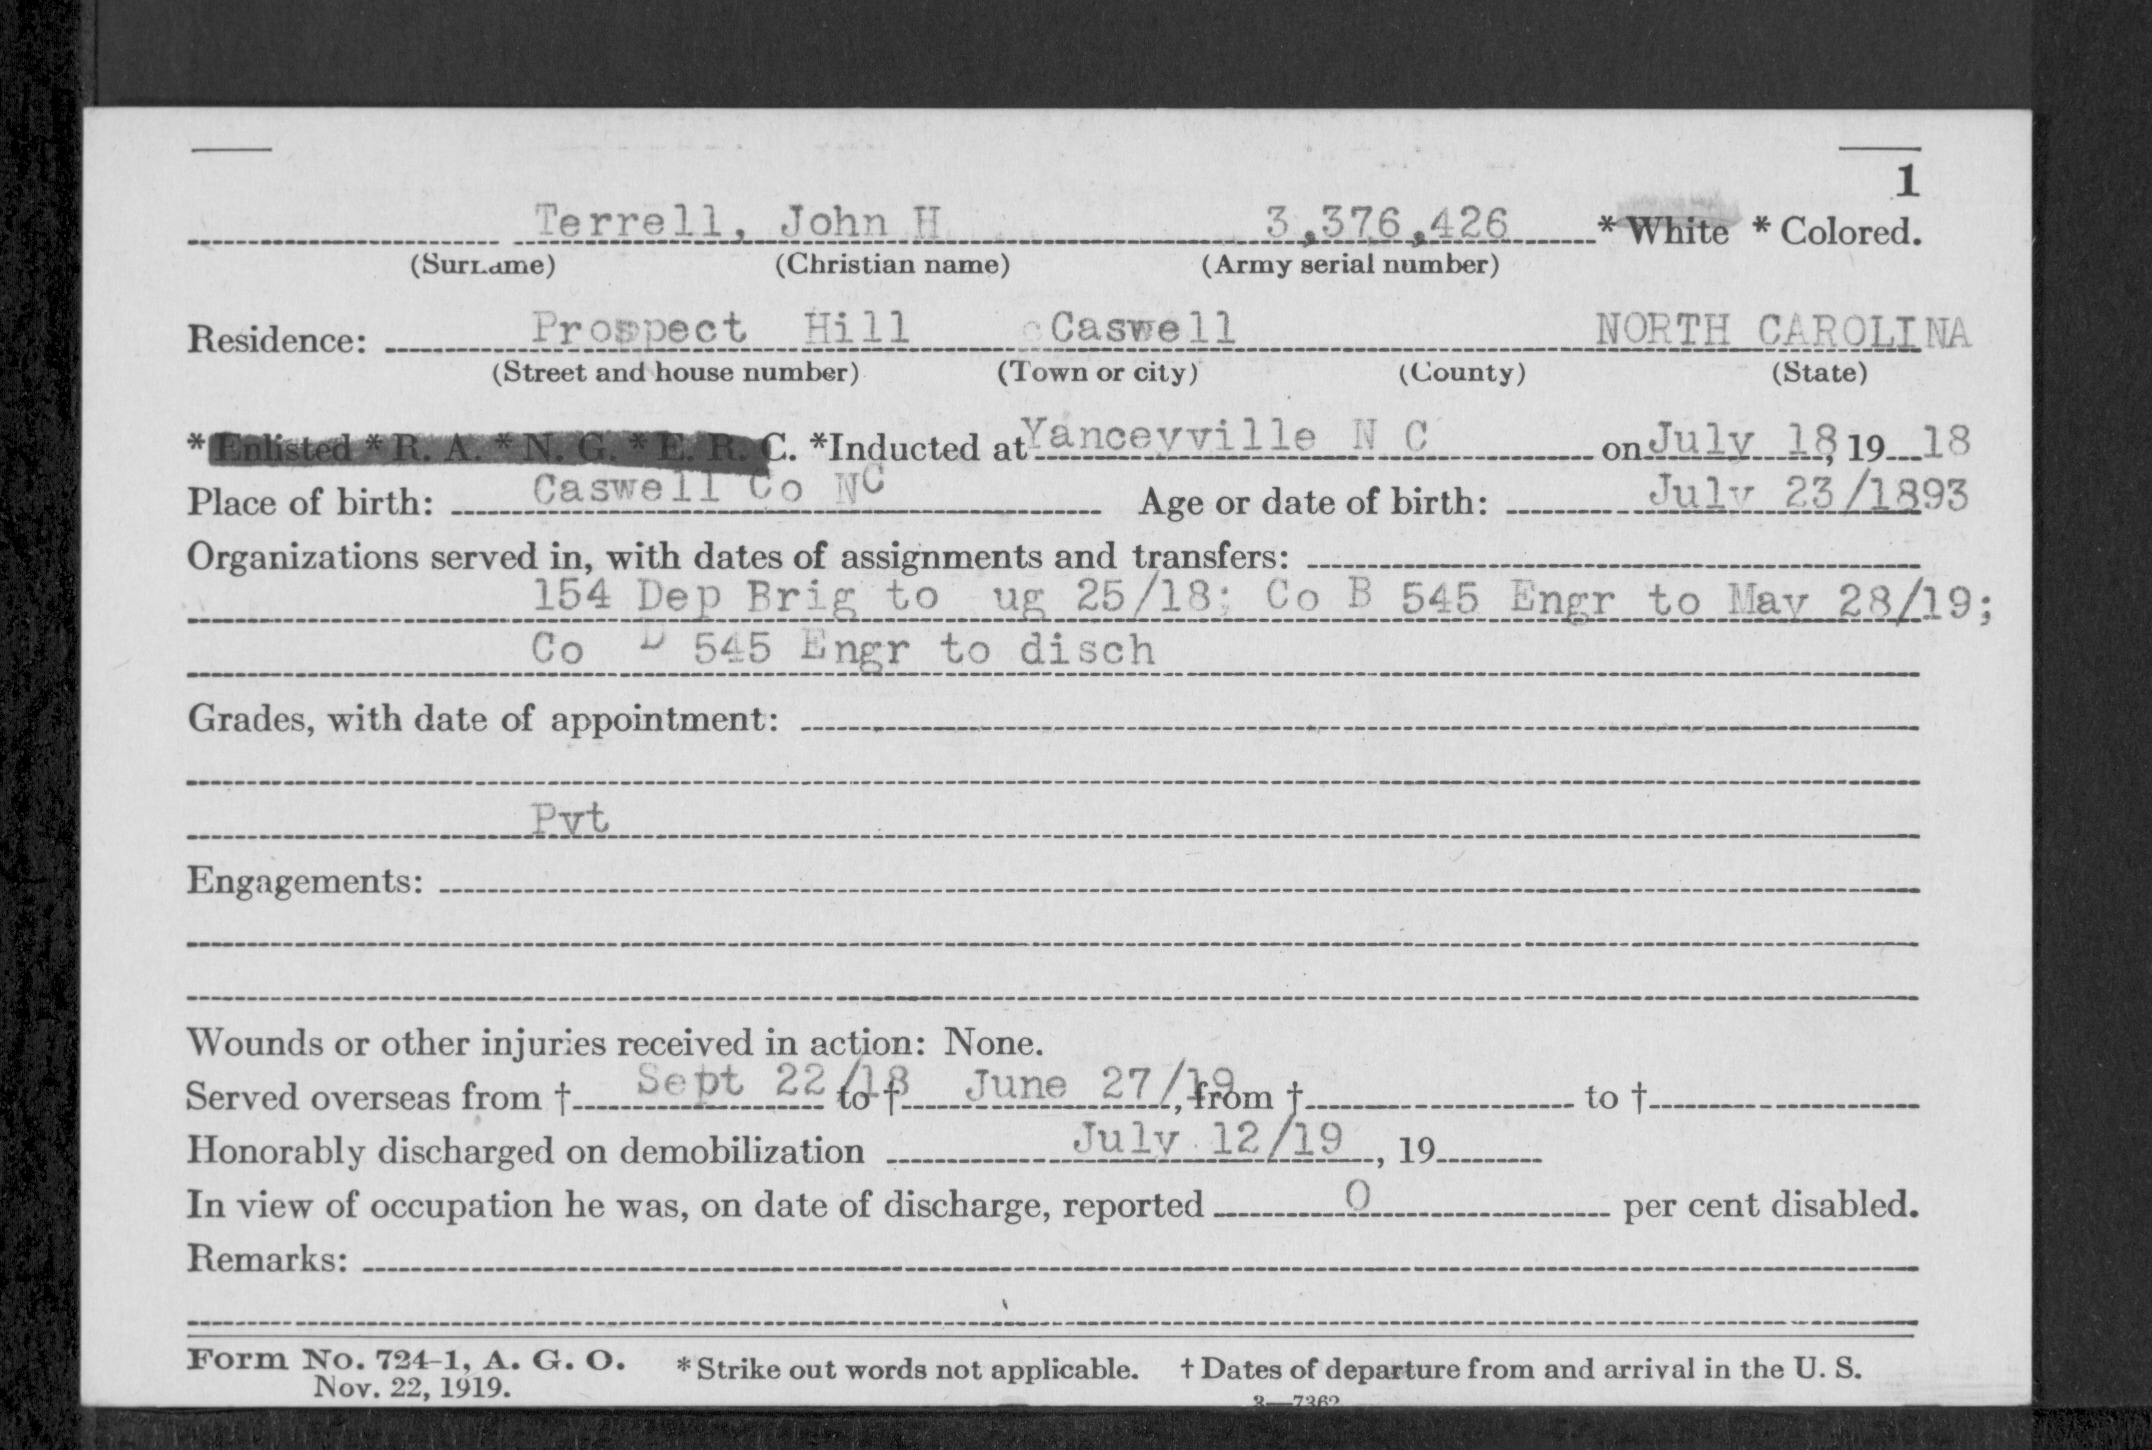 1
Terrell, John H 3,376,426 * White * Colored.
(Surname) (Christian name) (Army serial number)
Residence: Prospect Hill Caswell NORTH CAROLINA
(Street and house number) (Town or city) (County) (State)
* Enlisted * R. A. * N. G. * E. R. C. *Inducted at Yanceyville N C on July 18, 19 18
Place of birth: Caswell Co NC Age or date of birth: July 23/1893
Organizations served in, with dates of assignments and transfers:
154 Dep Brig to ug 25/18; Co B 545 Engr to May 28/19;
Co D 545 Engr to disch
Grades, with date of appointment:
Pvt
Engagements:
Wounds or other injuries received in action: None.
Served overseas from † Sept 22/18 to † June 27/19, from † to †
Honorably discharged on demobilization July 12/19, 19
In view of occupation he was, on date of discharge, reported 0 per cent disabled.
Remarks:
Form No. 724-1, A. G. O. * Strike out words not applicable. † Dates of departure from and arrival in the U. S.
Nov. 22, 1919. 3—7362